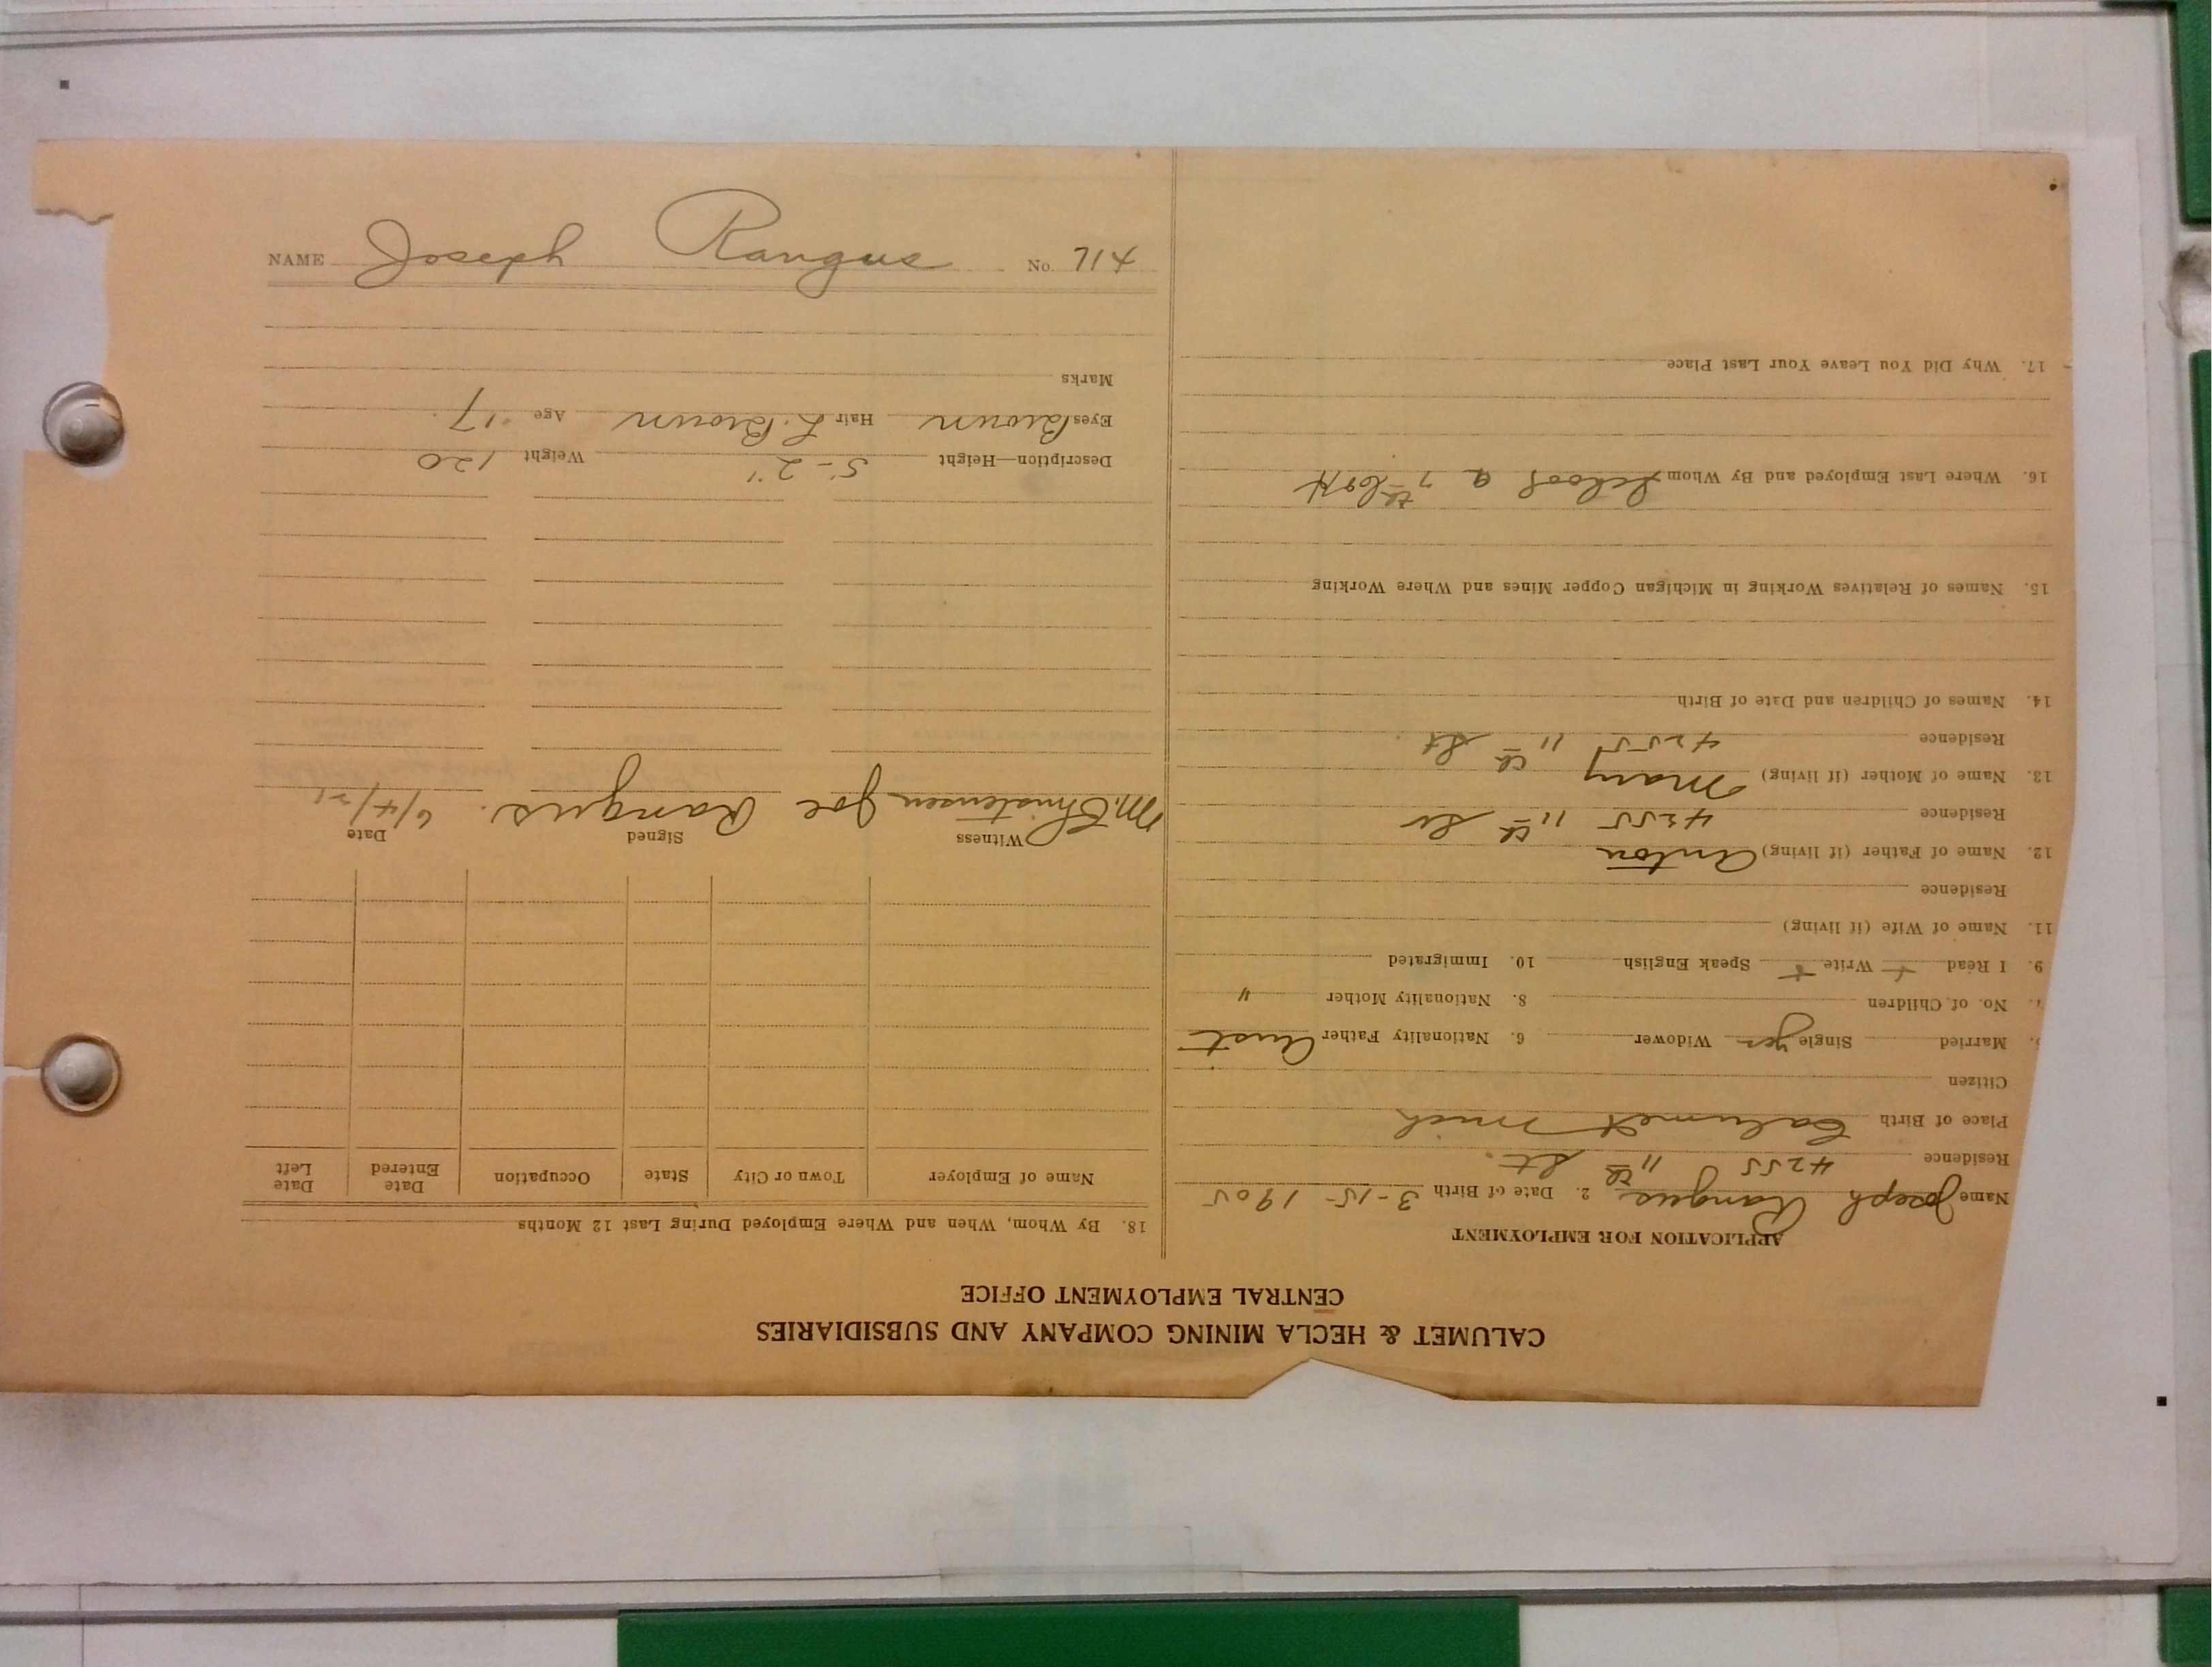 NAME Joseph Rangus No. 714
CALUMET & HECLA MINING COMPANY AND SUBSIDIARIES
CENTRAL EMPLOYMENT OFFICE
APPLICATION FOR EMPLOYMENT
Name Joseph Rangus 2. Date of Birth 3-15-1905
Residence 4255 11th St.
Place of Birth Calumet Mich
Citizen
Married Single yes Widower 6. Nationality Father Aust
No. of Children 8. Nationality Mother "
9. I Read + Write + Speak English 10. Immigrated
11. Name of Wife (if living)
Residence
12. Name of Father (if living) Anton
Residence 4255 11th St
13. Name of Mother (if living) Mary
Residence 4255 11th St.
14. Names of Children and Date of Birth
15. Names of Relatives Working in Michigan Copper Mines and Where Working
16. Where Last Employed and By Whom School 9 7th
17. Why Did You Leave Your Last Place
18. By Whom, When and Where Employed During Last 12 Months
Name of Employer Town or City State Occupation Date Entered Date Left
Witness Signed Date
M. Christensen Joe Rangus. 6/4/21
Description—Height 5-2" Weight 120
Eyes Brown Hair L. Brown Age 17
Marks